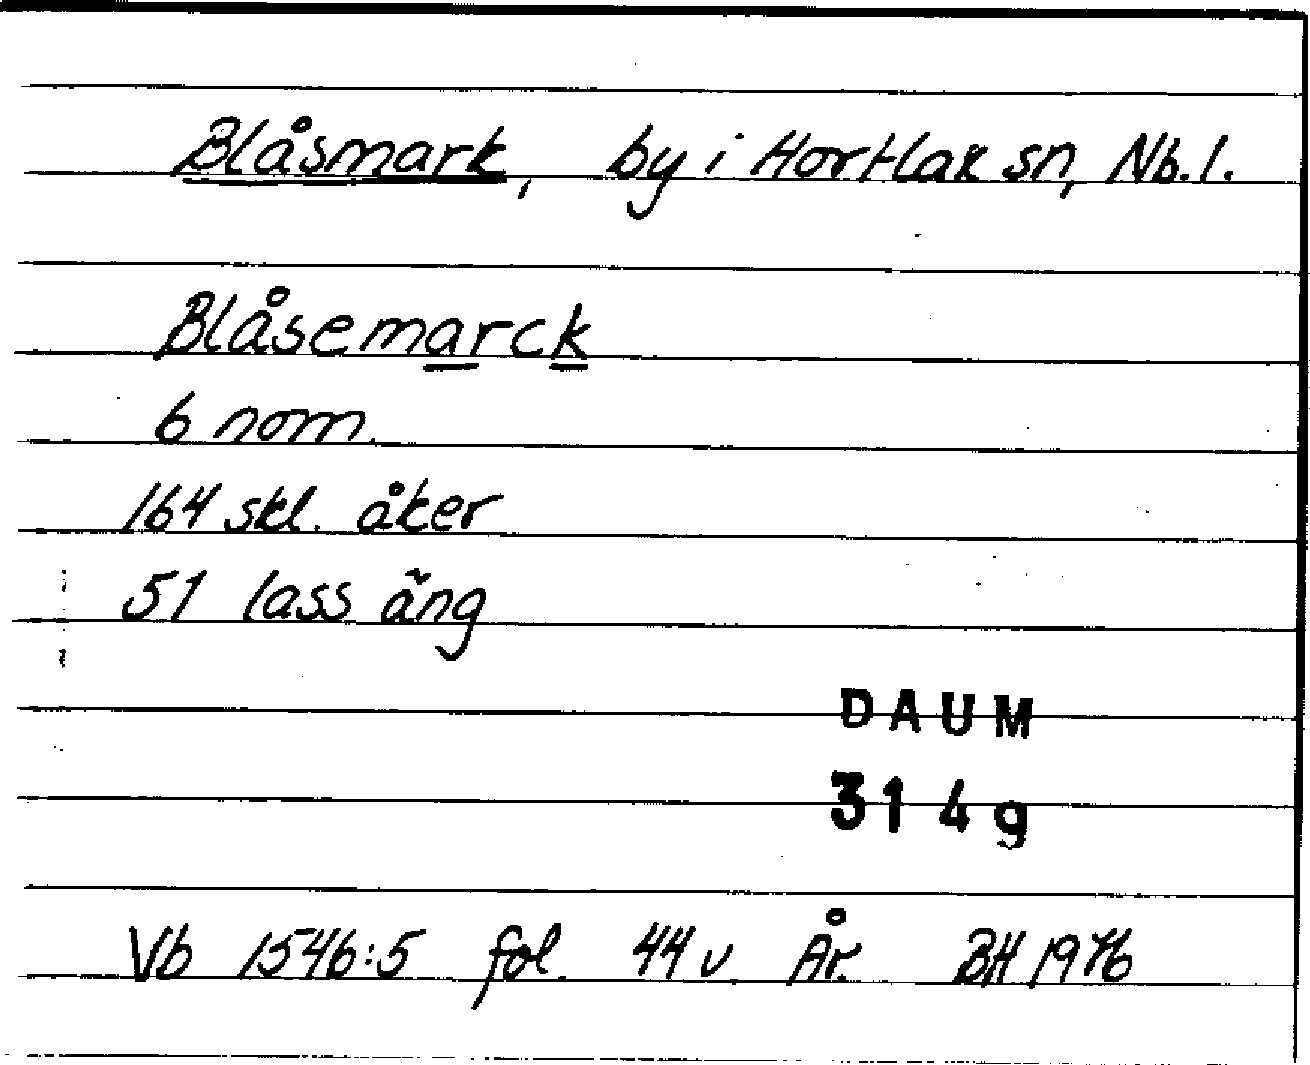 Blåsmark, by i Hortlax sn, Nb. l.
Blåsemarck
6 nom.
164 skl. åker
51 lass äng
DAUM
3149
Vb 1546:5 fol. 44 v. År. BH 1976